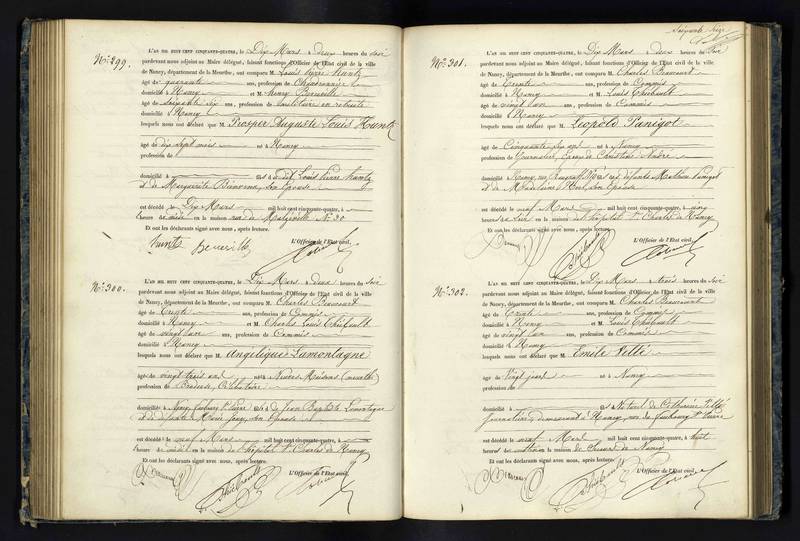 N.º 299.
L'AN MIL HUIT CENT CINQUANTE-QUATRE, le Dix Mars à deux heures du soir
pardevant nous adjoint au Maire délégué, faisant fonctions d'Officier de l'Etat civil de la ville
de Nancy, département de la Meurthe, ont comparu M. Louis Pierre Huntz
âgé de quarante ans, profession de
domicilié à Nancy et M. Henry
âgé de soixante six ans, profession de en retraite
domicilié à Nancy
lesquels nous ont déclaré que M. Prosper Auguste Louis Huntz
âgé de dix sept mois né à Nancy
profession de
domicilié à fils de dit Louis Pierre Huntz
et de Marguerite son épouse
est décédé le Dix Mars mil huit cent cinquante-quatre, à
heure de en la maison rue de Malzéville N.º 30
Et ont les déclarants signé avec nous, après lecture.
Huntz L'Officier de l'Etat civil,
N.º 300.
L'AN MIL HUIT CENT CINQUANTE-QUATRE, le Dix Mars à deux heures du soir
pardevant nous adjoint au Maire délégué, faisant fonctions d'Officier de l'Etat civil de la ville
de Nancy, département de la Meurthe, ont comparu M. Charles
âgé de Trente ans, profession de Commis
domicilié à Nancy et M. Charles Louis Thiébault
âgé de vingt ans, profession de Commis
domicilié à Nancy
lesquels nous ont déclaré que M. Angélique Lamontagne
âgé de vingt trois ans né à Neuves Maisons (meurthe)
profession de Brodeuse, Célibataire
domicilié à Nancy, faubourg St Pierre de Jean Baptiste Lamontagne
et de défunte Marie son épouse
est décédé le neuf Mars mil huit cent cinquante-quatre, à
heure de en la maison de l'hôpital St Charles de Nancy
Et ont les déclarants signé avec nous, après lecture.
Thiébault L'Officier de l'Etat civil,
Soixante Seize
N.º 301.
L'AN MIL HUIT CENT CINQUANTE-QUATRE, le Dix Mars à deux heures du soir
pardevant nous adjoint au Maire délégué, faisant fonctions d'Officier de l'Etat civil de la ville
de Nancy, département de la Meurthe, ont comparu M. Charles
âgé de Trente ans, profession de Commis
domicilié à Nancy et M. Louis Thiébault
âgé de vingt ans, profession de Commis
domicilié à Nancy
lesquels nous ont déclaré que M. Léopold Panigot
âgé de Cinquante six ans né à Nancy
profession de Journalier, Epoux de Christine André
domicilié à Nancy, rue fils des défunts Mathieu Panigot
et de Madelaine son épouse
est décédé le neuf Mars mil huit cent cinquante-quatre, à cinq
heures du soir en la maison de l'hôpital St Charles de Nancy
Et ont les déclarants signé avec nous, après lecture.
Thiébault L'Officier de l'Etat civil,
N.º 302.
L'AN MIL HUIT CENT CINQUANTE-QUATRE, le Dix Mars à trois heures du soir
pardevant nous adjoint au Maire délégué, faisant fonctions d'Officier de l'Etat civil de la ville
de Nancy, département de la Meurthe, ont comparu M. Charles
âgé de Trente ans, profession de Commis
domicilié à Nancy et M. Louis Thiébault
âgé de vingt ans, profession de Commis
domicilié à Nancy
lesquels nous ont déclaré que M. Emile Pillé
âgé de Vingt jours né à Nancy
profession de
domicilié à fils Naturel de Catherine Pillé
journalière demeurant à Nancy, rue du faubourg St Pierre
est décédé le neuf Mars mil huit cent cinquante-quatre, à huit
heures du matin en la maison de Secours de Nancy
Et ont les déclarants signé avec nous, après lecture.
Thiébault L'Officier de l'Etat civil,